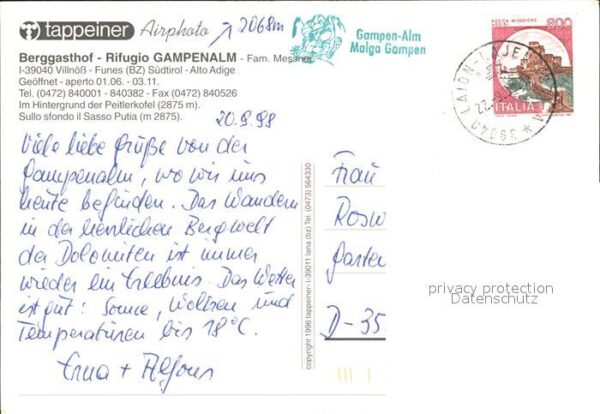 tappeiner Airphoto ↗ 2068m
Gampen-Alm
Malga Gampen
BOCCA MAGGIORE 800
ITALIA
39040 LAION-LAJEN
Berggasthof - Rifugio GAMPENALM - Fam. Messner
I-39040 Villnöß - Funes (BZ) Südtirol - Alto Adige
Geöffnet - aperto 01.06. - 03.11.
Tel. (0472) 840001 - 840382 - Fax (0472) 840526
Im Hintergrund der Peitlerkofel (2875 m).
Sullo sfondo il Sasso Putia (m 2875).
20.9.98
Viele liebe Grüße von der
Gampenalm, wo wir uns
heute befinden. Das Wandern
in der herrlichen Bergwelt
der Dolomiten ist immer
wieder ein Erlebnis. Das Wetter
ist gut: Sonne, Wolken und
Temperaturen bis 18°C.
Erna + Alfons
copyright 1996 tappeiner I-39011 lana (bz) Tel. (0473) 564330
Frau
Rosw
Garten
D-35
privacy protection
Datenschutz